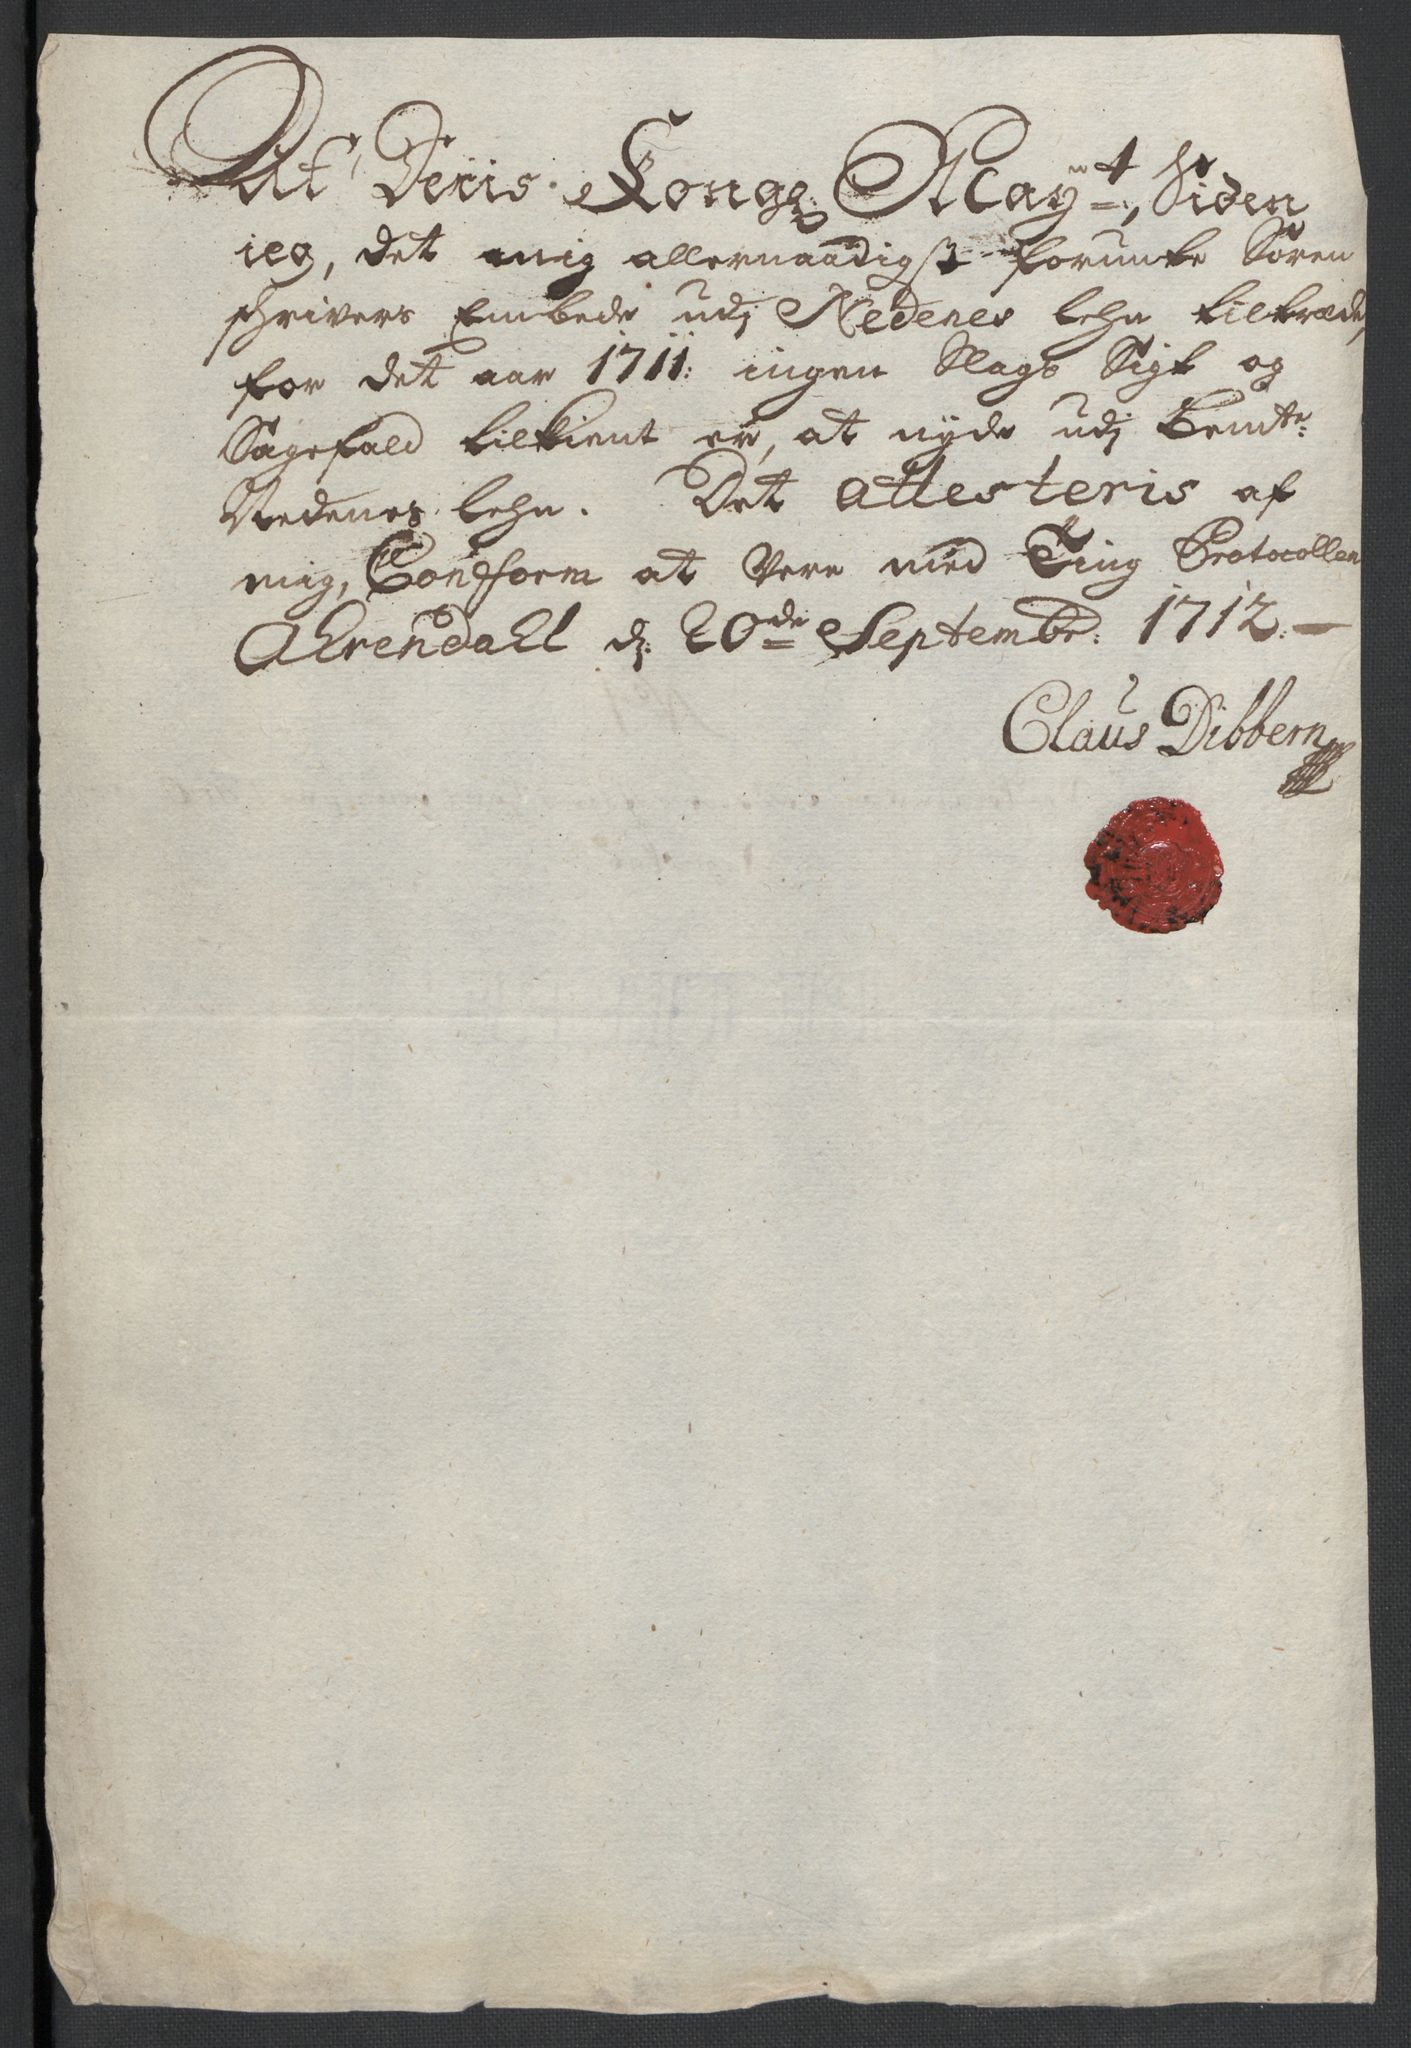 At Deris Kongl: May:tt, Siden
ieg, det mig allernaadigst forunte Soren
schrivers Embede udj Nedenes lehn tiltrædde,
for det aar 1711: ingen Slags Sigt og
Sagefald tilkient er, at nyde udj bemte:
Nedenes lehn. Det attesteris af
mig, Conform at være med Ting Protocollen
Ahrendahl d: 20de Septembr: 1712.
Claus Dibbern